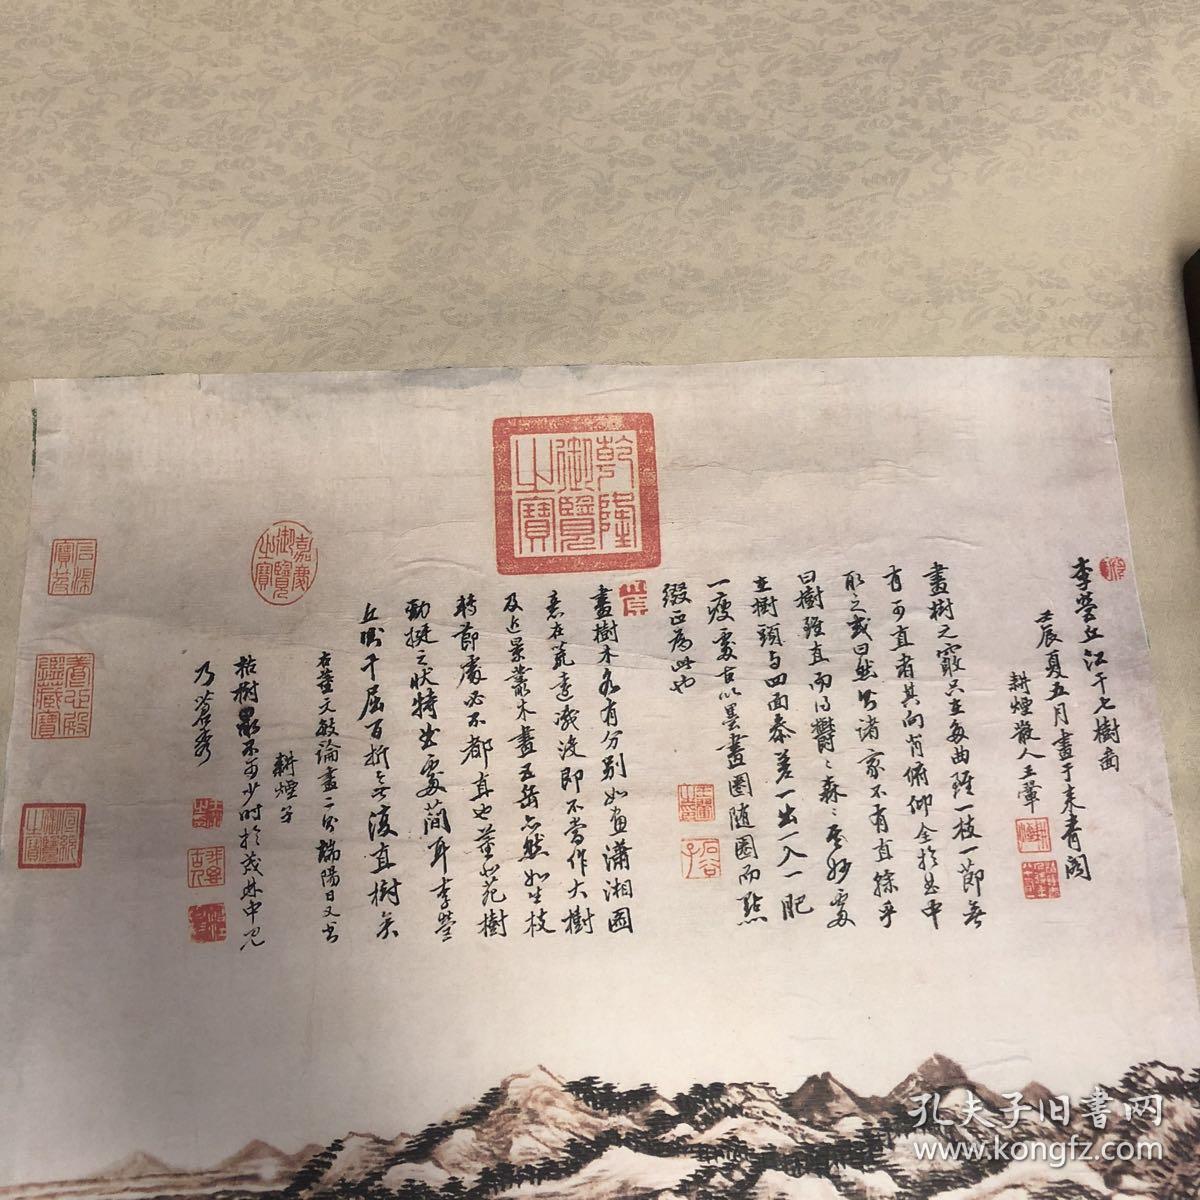 李營丘江干七樹圖
壬辰夏五月畫于來青閣
耕煙散人王翬
畫樹之竅只在多曲雖一枝一節無
有可直者其向背俯仰全於曲中
取之或曰然則諸家不有直樹乎
曰樹雖直而
在樹頭與四面參差一出一入一肥
一瘦處古以墨畫圈隨圈而點
綴正為此也
畫樹木各有分別如畫瀟湘圖
意在荒遠滅沒即不當作大樹
及近景叢木畫五岳亦然如生枝
轉節處必不都直也董北苑樹
勁挺之狀特曲處簡耳李營
丘則千屈百折無復直樹矣
右董文敏論畫二則端陽日又書
耕煙子
枯樹最不可少時於茂林中見
乃蒼秀
乾隆御覽之寶
嘉慶御覽之寶
石渠寶笈
養心殿鑑藏寶
宣統御覽之寶
王翬之印
石谷子
孔夫子旧书网
www.kongfz.com